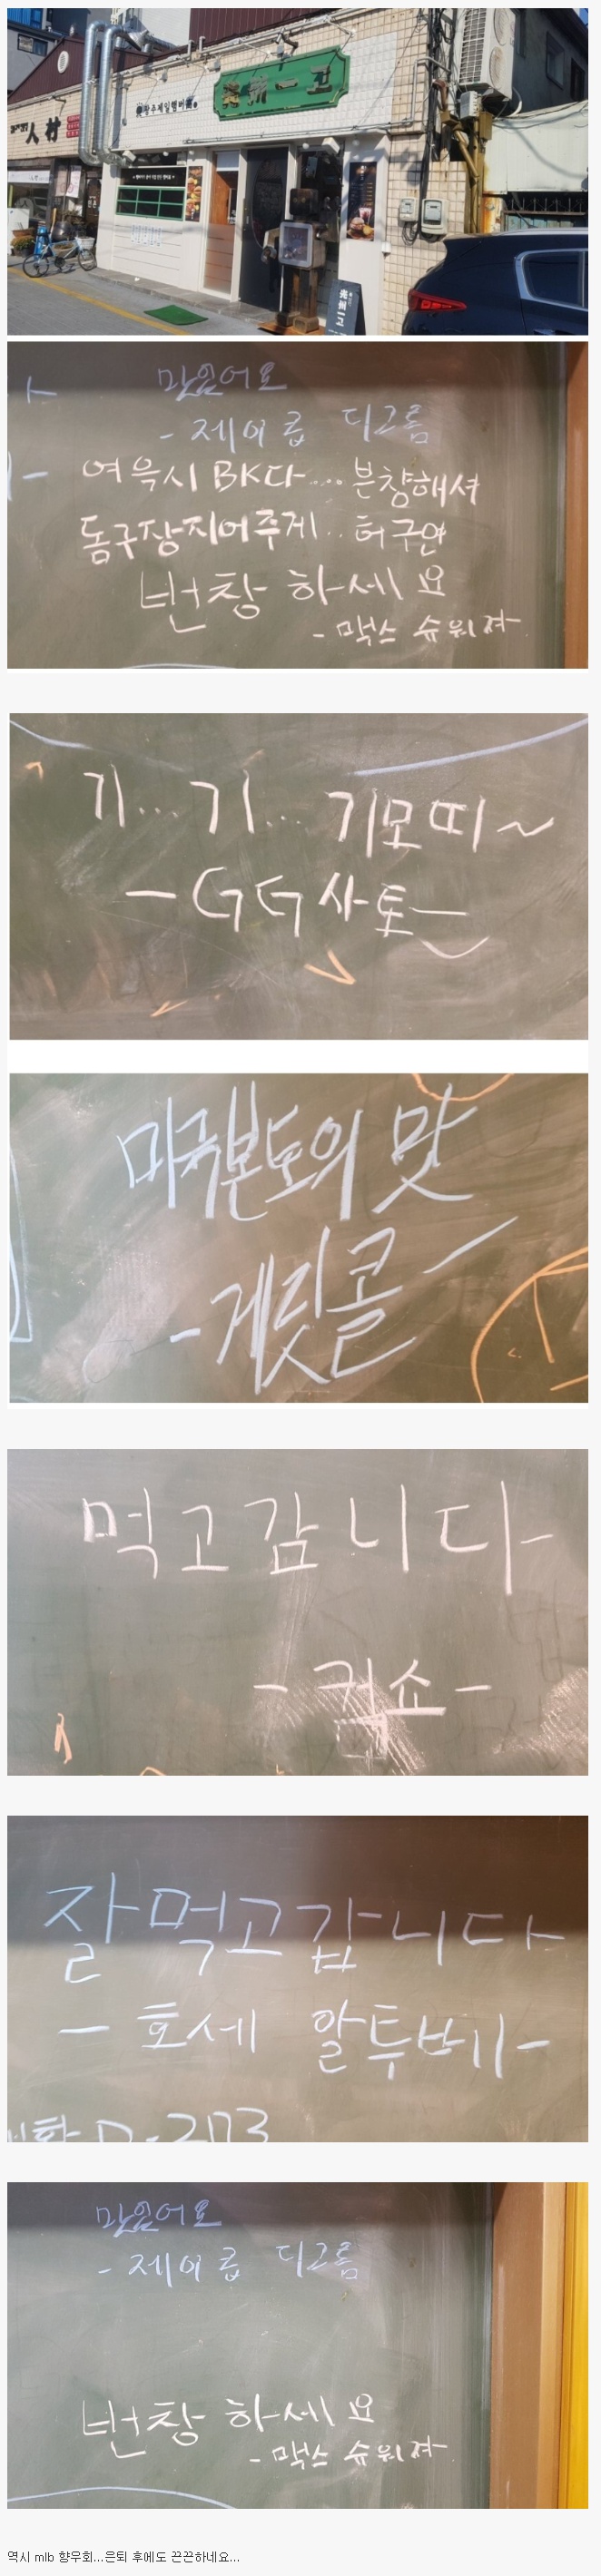 人村
光州一고
광주제일햄버고
光州一고
맛있어요
- 제이콥 디그롬
여윽시 BK다.... 븐창해셔
돔구장지어주게.. 허구연
번창 하세요
- 맥스 슈워져
기... 기... 기모띠~
- GG 사토
미국본토의 맛
- 게릿콜 -
먹고갑니다
- 킥쇼 -
잘먹고갑니다
- 호세 알투베 -
D-203
맛있어요
- 제이콥 디그롬
번창 하세요
- 맥스 슈워져
역시 mlb 향우회...은퇴 후에도 끈끈하네요...